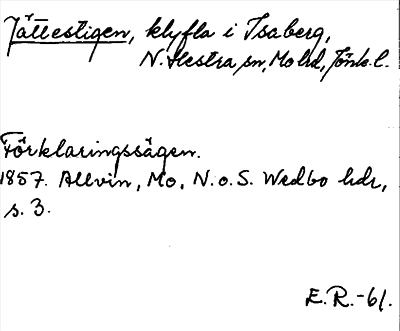 Jättestigen, klyfla i Isaberg,
N. Hestra sn, Mo hd, Jönk. l.
Förklaringssägen.
1857. Allvin, Mo, N. o. S. Wedbo hdr,
s. 3.
E. R. -61.